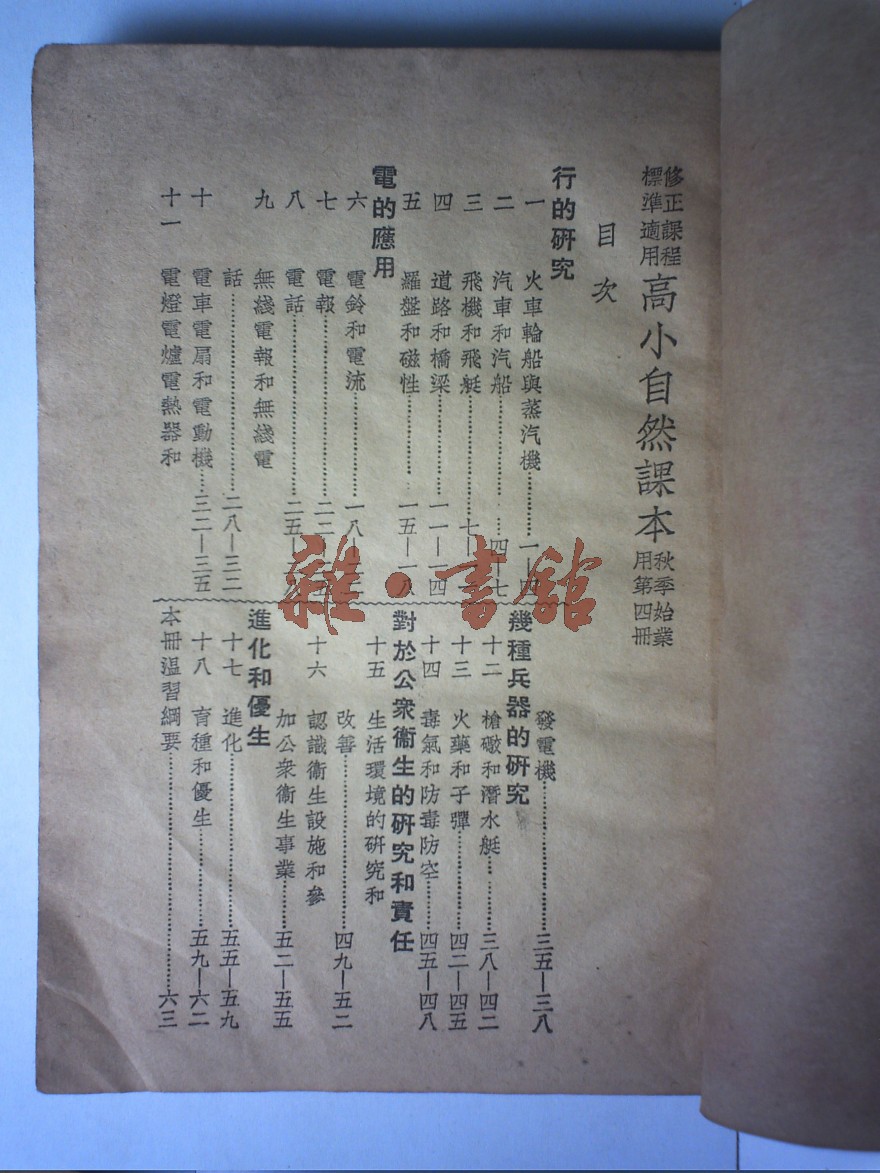 修正課程
標準適用
高小自然課本
秋季始業
用第四冊
目次
行的研究
一 火車輪船與蒸汽機…………一—四
二 汽車和汽船…………四—七
三 飛機和飛艇…………七—
四 道路和橋梁…………一一—一四
五 羅盤和磁性…………一五—一八
電的應用
六 電鈴和電流…………一八—二二
七 電報…………二二—二五
八 電話…………二五—二八
九 無綫電報和無綫電
話…………二八—三二
十 電車電扇和電動機…三二—三五
十一 電燈電爐電熱器和
發電機…………三五—三八
幾種兵器的研究
十二 槍礮和潛水艇…………三八—四二
十三 火藥和子彈…………四二—四五
十四 毒氣和防毒防空…………四五—四八
對於公衆衞生的研究和責任
十五 生活環境的研究和
改善…………四九—五二
十六 認識衞生設施和參
加公衆衞生事業…………五二—五五
進化和優生
十七 進化…………五五—五九
十八 育種和優生…………五九—六二
本冊溫習綱要…………六三
雜·書館